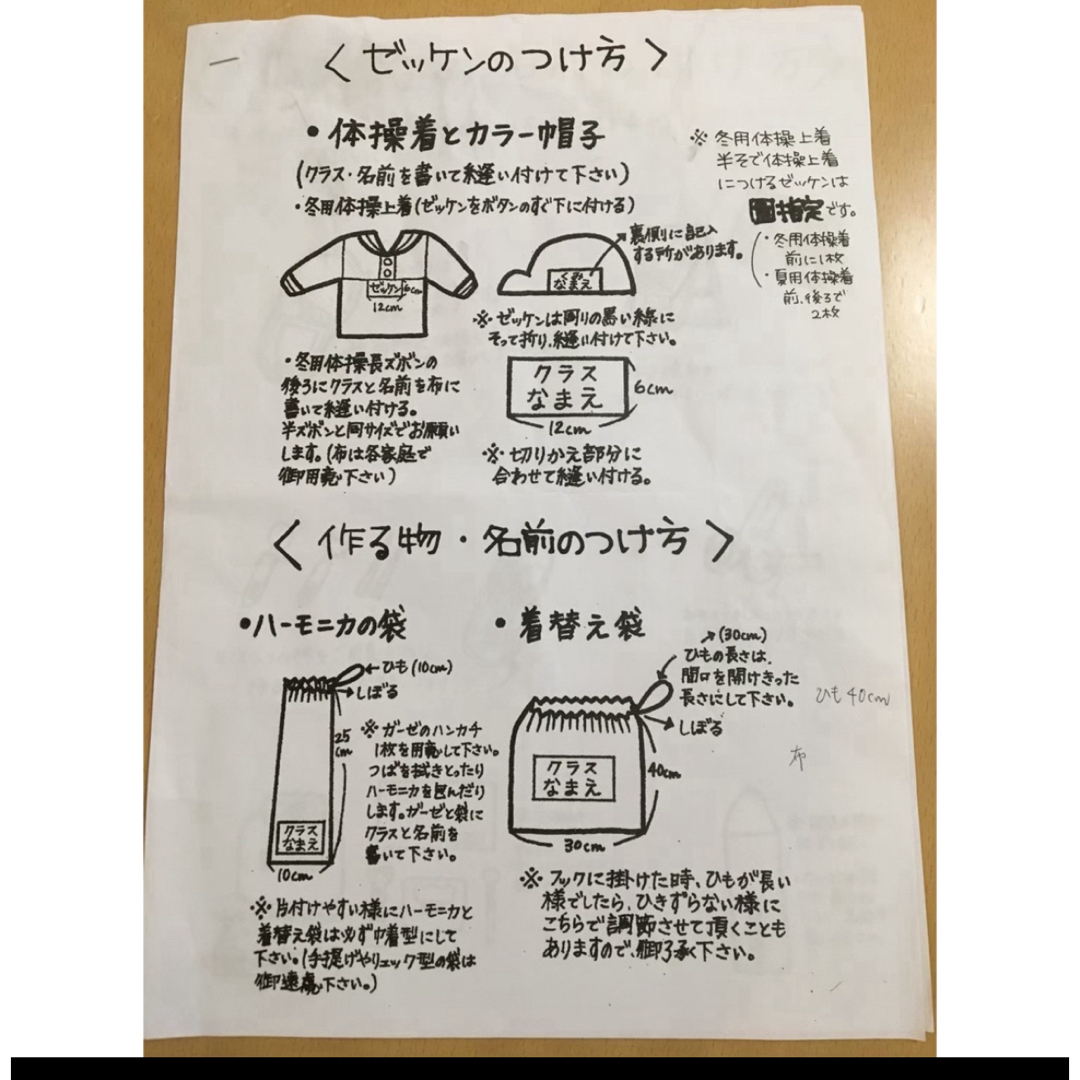 〈 ゼッケンのつけ方 〉
・体操着とカラー帽子
(クラス・名前を書いて縫い付けて下さい)
・冬用体操上着(ゼッケンをボタンのすぐ下に付ける)
ゼッケン
6cm
12cm
裏側に記入
する所があります。
くみ
なまえ
※ 冬用体操上着
半そで体操上着
につけるゼッケンは
園指定です。
(・冬用体操着
前に1枚
・夏用体操着
前、後ろで
2枚
※ ゼッケンは周りの黒い線に
そって折り、縫い付けて下さい。
クラス
なまえ
6cm
12cm
※ 切りかえ部分に
合わせて縫い付ける。
・冬用体操長ズボンの
後ろにクラスと名前を布に
書いて縫い付ける。
半ズボンと同サイズでお願い
します。(布は各家庭で
御用意下さい)
〈 作る物・名前のつけ方 〉
・ハーモニカの袋
←ひも(10cm)
→しぼる
25
cm
クラス
なまえ
10cm
※ ガーゼのハンカチ
1枚を用意して下さい。
つばを拭きとったり
ハーモニカを包んだり
します。ガーゼと袋に
クラスと名前を
書いて下さい。
※ 片付けやすい様にハーモニカと
着替え袋は必ず巾着型にして
下さい。(手提げやリュック型の袋は
御遠慮下さい。)
・着替え袋
↗(30cm)
ひもの長さは、
間口を開けきった
長さにして下さい。
ひも40cm
しぼる
布
クラス
なまえ
40cm
30cm
※ フックに掛けた時、ひもが長い
様でしたら、ひきずらない様に
こちらで調節させて頂くことも
ありますので、御了承下さい。